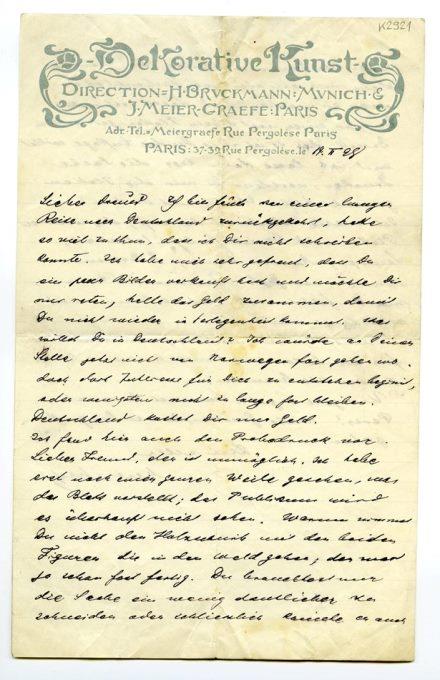 K2921
-Dekorative Kunst-
DIRECTION=H·BRVCKMANN:MVNICH·&
J·MEIER-GRAEFE:PARIS
Adr·Tel·=Meiergraefe Rue Pergolèse Paris
PARIS:37-39 Rue Pergolèse. le 19. II 98
Lieber Freund Ich bin früh von einer langen
Reise nach Deutschland zurückgekehrt, habe
so viel zu thun, dass ich Dir nicht schreiben
konnte. Ich habe mich sehr gefreut, dass Du
ein paar Bilder verkauft hast und möchte Dir
nur raten, halte das Geld zusammen, damit
Du nicht wieder in Verlegenheit kommst. Was
willst Du in Deutschland? Ich würde an Deiner
Stelle jetzt nicht von Norwegen fort gehen wo
doch dort Interesse für Dich zu entstehen beginnt,
oder wenigstens nicht zu lange fort bleiben.
Deutschland kostet Dir nur Geld.
Ich fand hier auch den Probedruck vor.
Lieber Freund, der ist unmöglich. Ich habe
erst nach einer ganzen Weile gesehen, was
das Blatt vorstellt; das Publikum wird
es überhaupt nicht sehen. Warum nimmst
Du nicht den Holzschnitt mit den beiden
Figuren die in den Wald gehen; das war
so schon fast fertig. Du brauchtest nur
die Sache ein wenig deutlicher zu
schneiden oder schliesslich könnte es auch